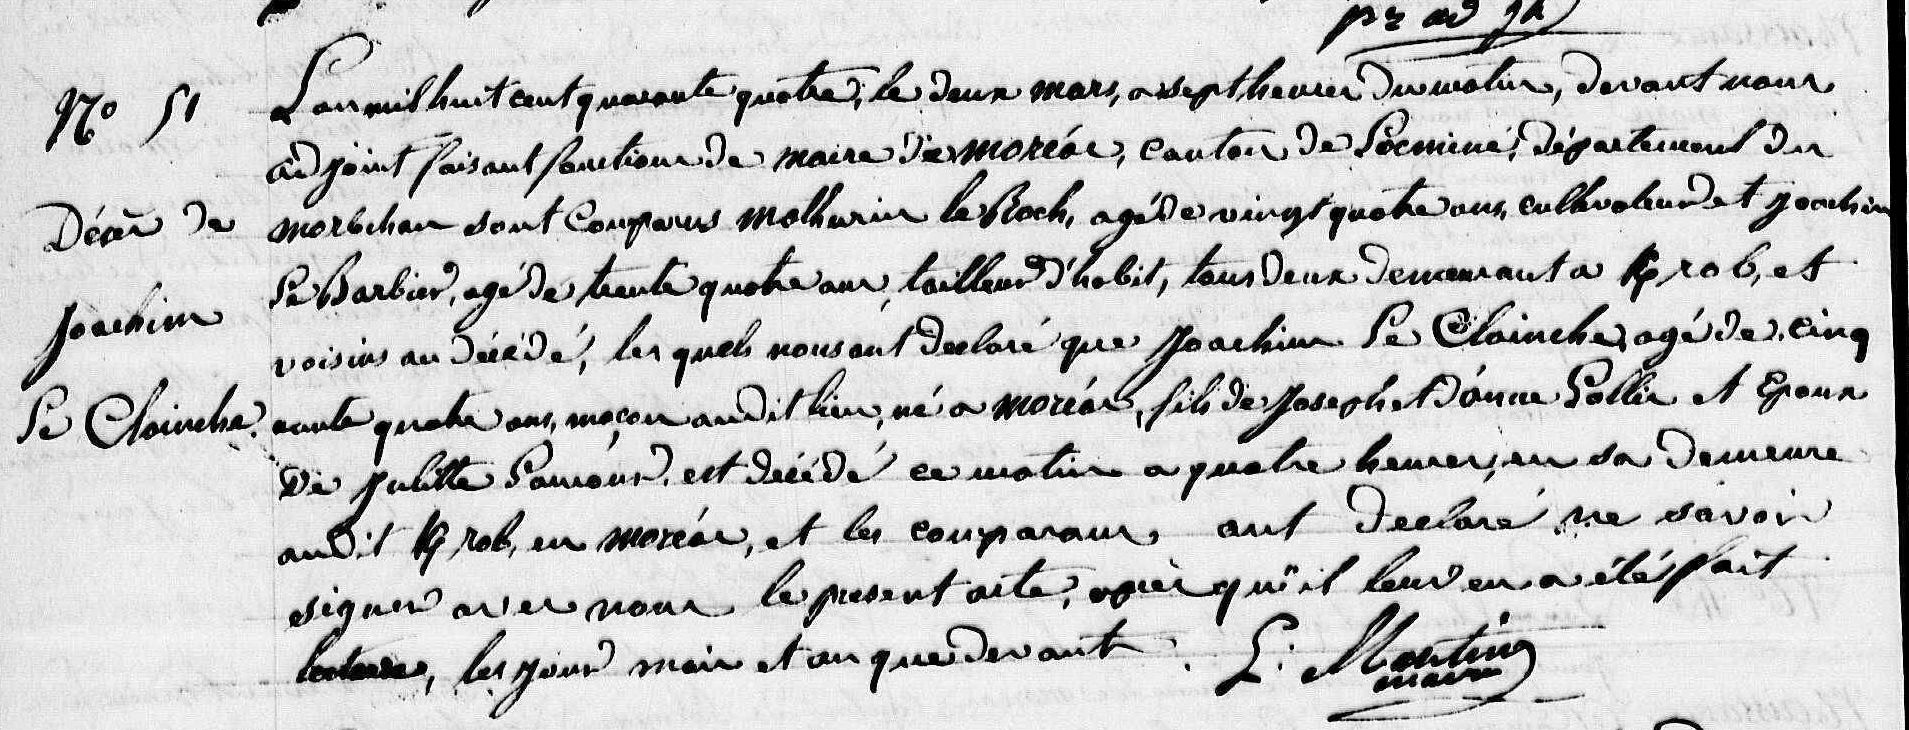 N° 51
Décès de
Joachim
Le Clainche.
L'an mil huit cent quarante quatre, le deux mars, a sept heures du matin, devant nous
adjoint faisant fonctions de maire de moréac, canton de Locminé, département du
morbihan sont comparus Mathurin le Roch, agé de vingt quatre ans, cultivateur et Joachim
Le Barbier, agé de trente quatre ans, tailleur d'habit, tous deux demeurant a K/rob, et
voisins au décédé, les quels nous ont declaré que Joachim Le Clainche, agé de cinq
uante quatre ans, maçon au dit lieu, né a moréac, fils de Joseph et d'anne Le et Epoux
de Julitte est décédé ce matin a quatre heures, en sa demeure
au dit K/rob, en moréac, et les comparans ont declaré ne savoir
signer avec nous le present acte, après qu'il leur en a étés fait
lecture, les jour mois et an que devant. L. Martin
maire